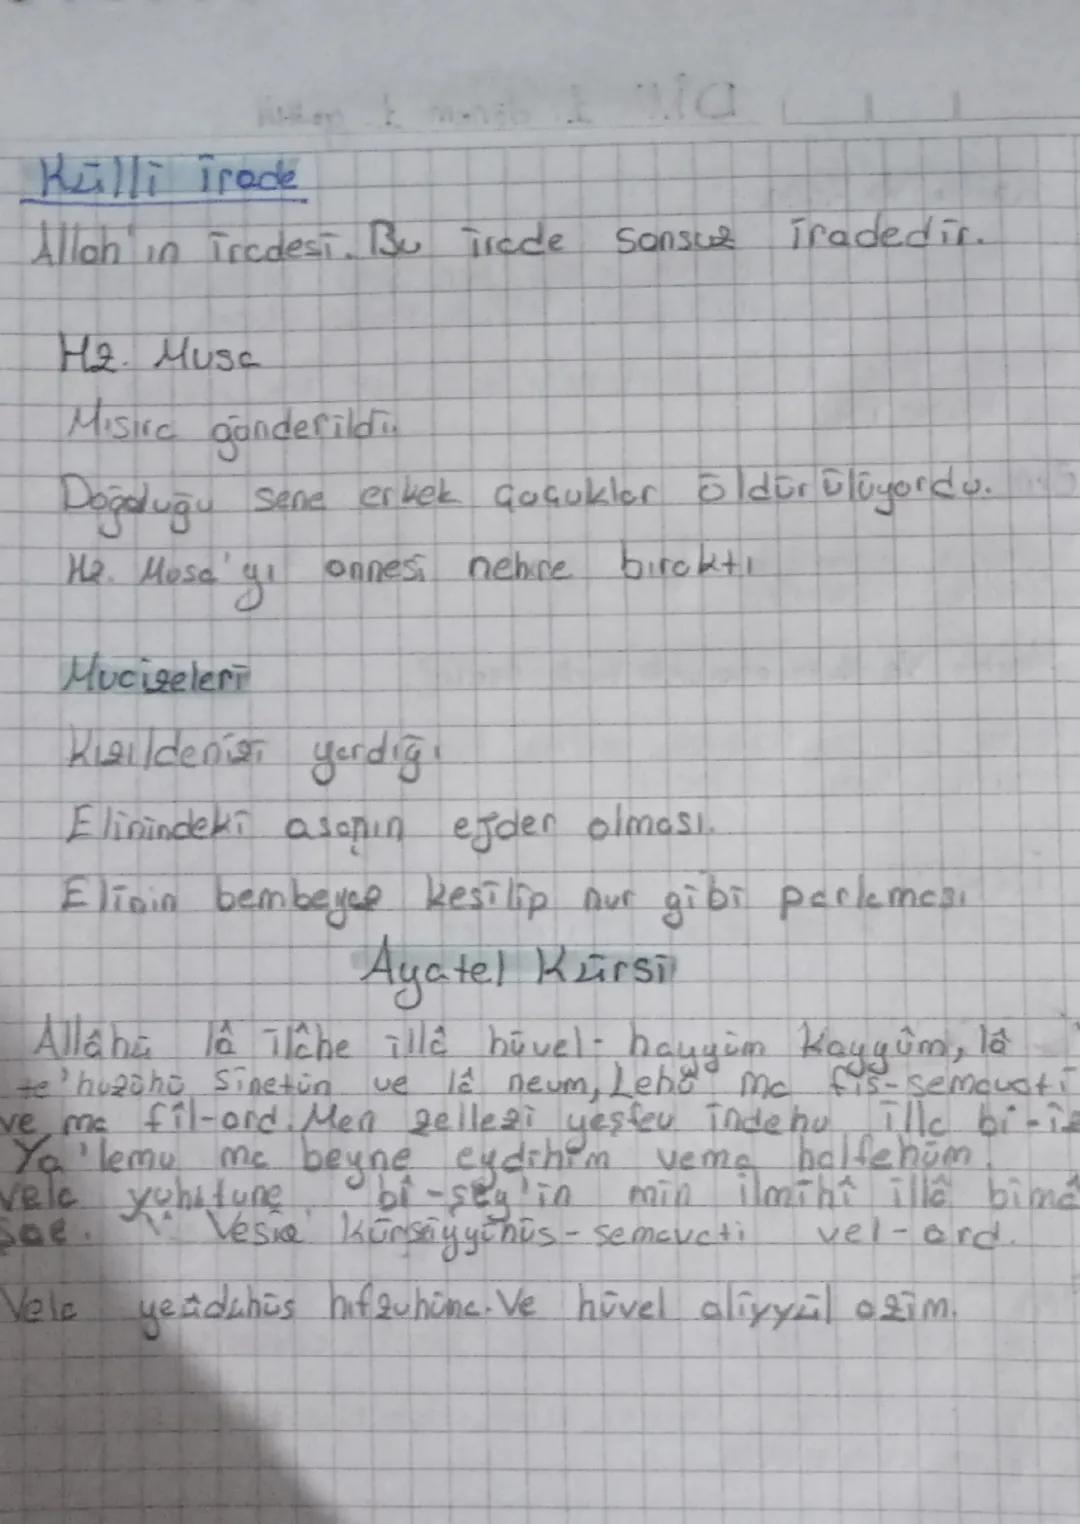 Külli irade
Allah'ın iradesi. Bu irade sonsuz iradedir.
Hz. Musa
Mısıra gönderildi.
Doğduğu sene erkek çocuklar öldürülüyordu.
Hz. Musa'yı annesi nehire bıraktı
Mucizeleri
Kızıldenizi yardığı
Elinindeki asanın ejder olması.
Elinin bembeyaz kesilip nur gibi parlaması
Ayatel Kürsi
Allâhü lâ ilâhe illâ hüvel-hayyüm Kayyûm, lâ
te'huzühü Sinetün ve lâ neum, Lehû ma fis-semavati
ve ma fil-ard. Men zellezi yeşfeu indehu illa bi-iz
Ya'lemu ma beyne eydihim vema halfehüm.
vela yuhitune bi-şey'in min ilmihî illâ bimâ
şae. Vesia kürsiyyühüs-semavati vel-ard.
Vela yeûduhüs hıfzuhüma. Ve hüvel aliyyül azim.